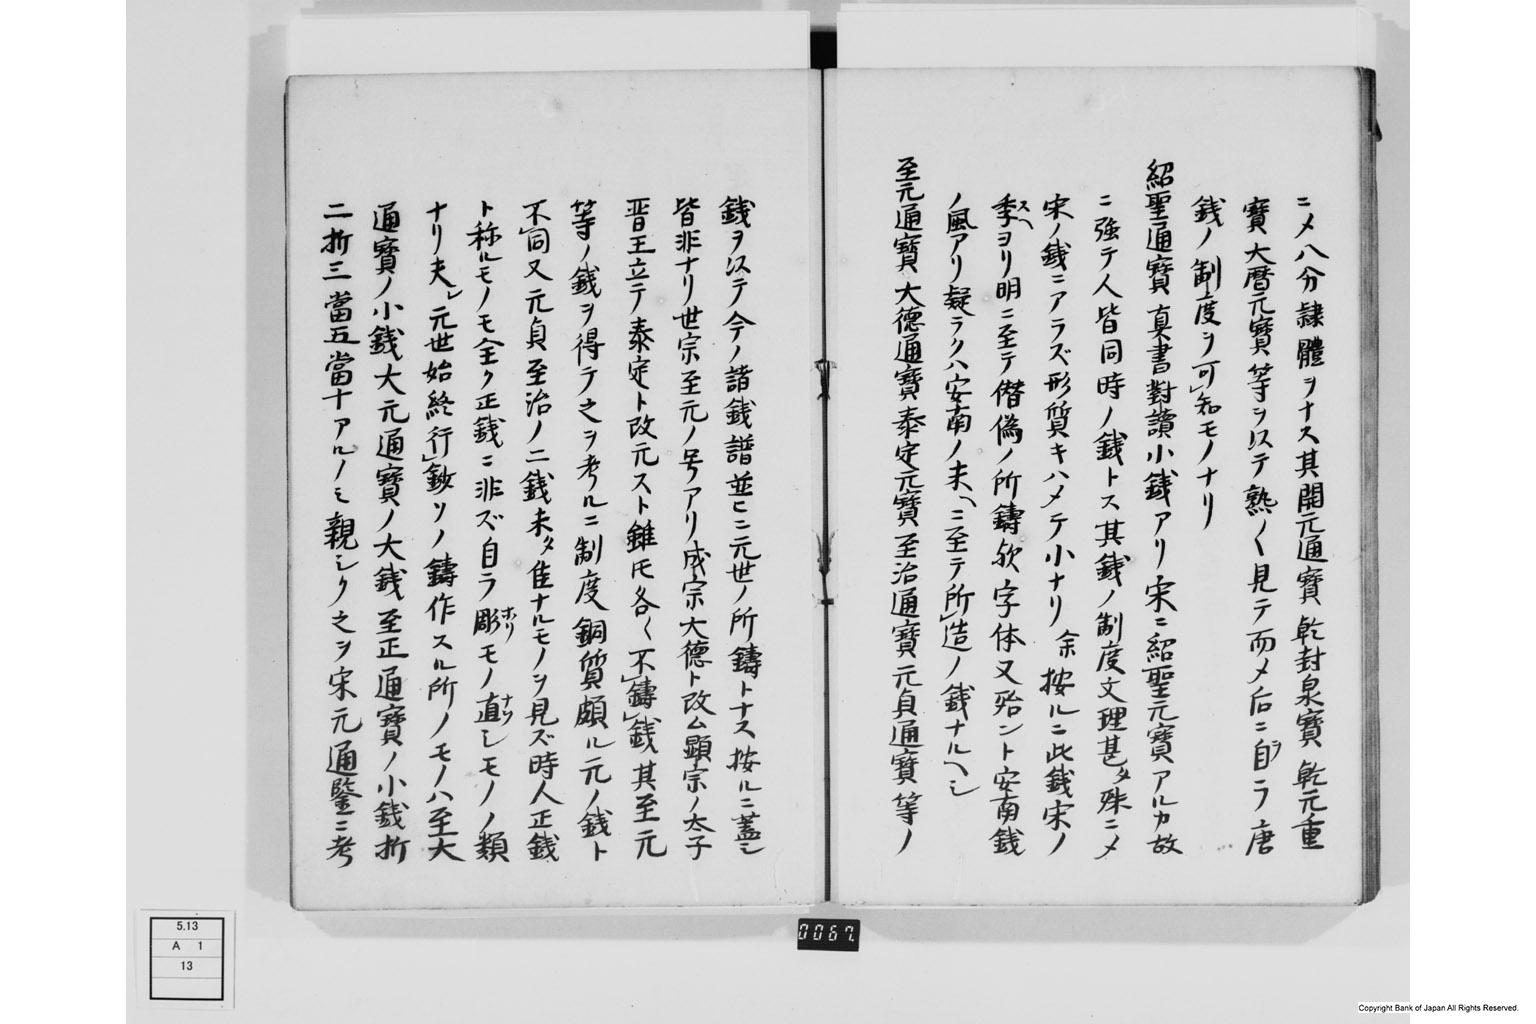 ニメ八分隷體ヲナス其開元通寳乾封泉寳乾元重
寳大暦元寳等ヲ以テ熟〱見テ而メ后ニ自ラ唐
銭ノ制度ヲ可知モノナリ
紹聖通寳真書對讀小銭アリ宋ニ紹聖元寳アルカ故
ニ強テ人皆同時ノ銭トス其銭ノ制度文理甚タ殊ニメ
宋ノ銭ニアラズ形質キハメテ小ナリ余按ルニ此銭宋ノ
季スヘヨリ明ニ至テ僭偽ノ所鑄欤字体又殆ント安南銭
ノ風アリ疑ラクハ安南ノ末ヘニ至テ所造ノ銭ナルヘシ
至元通寳大德通寳泰定元寳至治通寳元貞通寳等ノ
銭ヲ以テ今ノ諸銭譜並ヒニ元世ノ所鑄トナス按ルニ蓋シ
皆非ナリ世宗至元ノ号アリ成宗大德ト改ム顕宗ノ太子
晋王立テ泰定ト改元スト雖モ各〱不鑄銭其至元
等ノ銭ヲ得テ之ヲ考ルニ制度銅質頗ル元ノ銭ト
不同又元貞至治ノ二銭未タ佳ナルモノヲ見ズ時人正銭
ト称ルモノモ全ク正銭ニ非ズ自ラ彫ホリモノ直ナヲシモノノ類
ナリ夫レ元世始終行鈔ソノ鑄作スル所ノモノハ至大
通寳ノ小銭大元通寳ノ大銭至正通寳ノ小銭折
二折三當五當十アルノミ親シク之ヲ宋元通鑒ニ考
5.13
A 1
13
0067.
Copyright Bank of Japan All Rights Reserved.